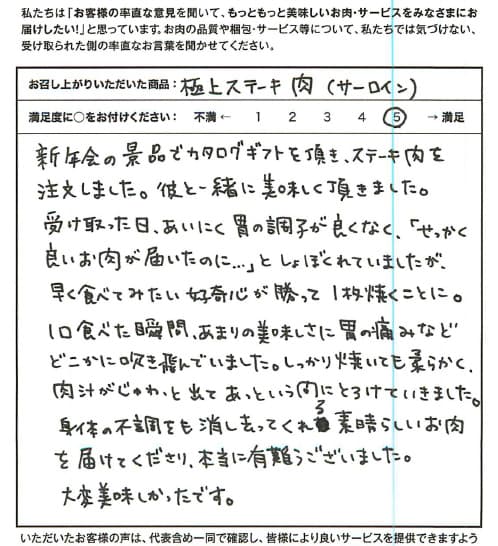 私たちは「お客様の率直な意見を聞いて、もっともっと美味しいお肉・サービスをみなさまにお
届けしたい!」と思っています。お肉の品質や梱包・サービス等について、私たちでは気づけない、
受け取られた側の率直なお言葉を聞かせてください。
お召し上がりいただいた商品：極上ステーキ肉（サーロイン）
満足度に○をお付けください： 不満 ← 1 2 3 4 5 → 満足
新年会の景品でカタログギフトを頂き、ステーキ肉を
注文しました。彼と一緒に美味しく頂きました。
受け取った日、あいにく胃の調子が良くなく、「せっかく
良いお肉が届いたのに…」としょぼくれていましたが、
早く食べてみたい好奇心が勝って1枚焼くことに。
1口食べた瞬間、あまりの美味しさに胃の痛みなど
どこかに吹き飛んでいました。しっかり焼いても柔らかく、
肉汁がじゅわっと出てあっという間にとろけていきました。
身体の不調をも消し去ってくれる素晴らしいお肉
を届けてくださり、本当に有難うございました。
大変美味しかったです。
いただいたお客様の声は、代表含め一同で確認し、皆様により良いサービスを提供できますよう